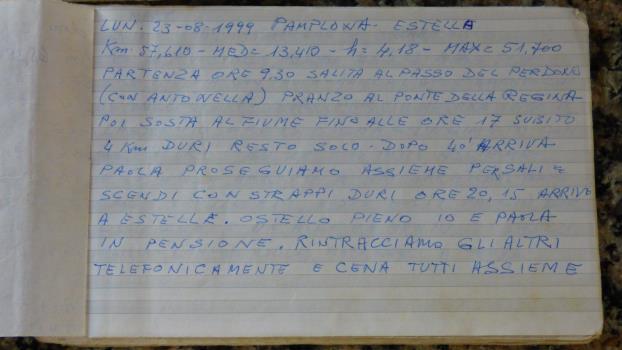 LUN. 23-08-1999 PAMPLONA - ESTELLA
Km 57,610 - MED= 13,410 - h= 4,18 - MAX= 51,700
PARTENZA ORE 9,30 SALITA AL PASSO DEL PERDONO
(CON ANTONELLA) PRANZO AL PONTE DELLA REGINA
POI SOSTA AL FIUME FINO ALLE ORE 17 SUBITO
4 Km DURI RESTO SOLO. DOPO 40' ARRIVA
PAOLA PROSEGUIAMO ASSIEME PER SALI E
SCENDI CON STRAPPI DURI ORE 20,15 ARRIVO
A ESTELLE. OSTELLO PIENO IO E PAOLA
IN PENSIONE. RINTRACCIAMO GLI ALTRI
TELEFONICAMENTE E CENA TUTTI ASSIEME